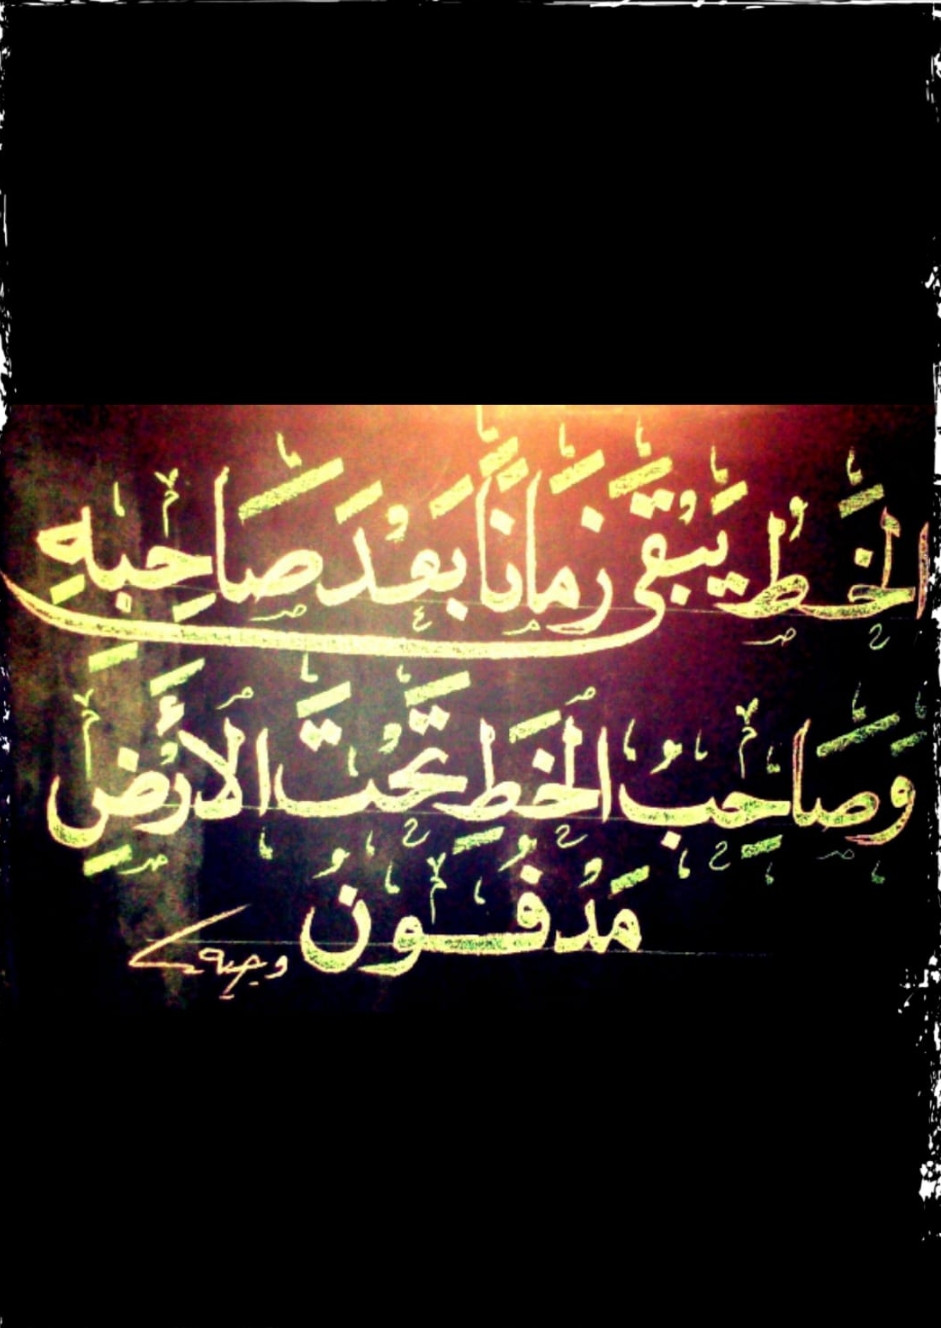 الخَطُّ يَبْقَى زَمَانًا بَعْدَ صَاحِبِهِ
وَصَاحِبُ الخَطِّ تَحْتَ الأَرْضِ
مَدْفُونُ
وجيه